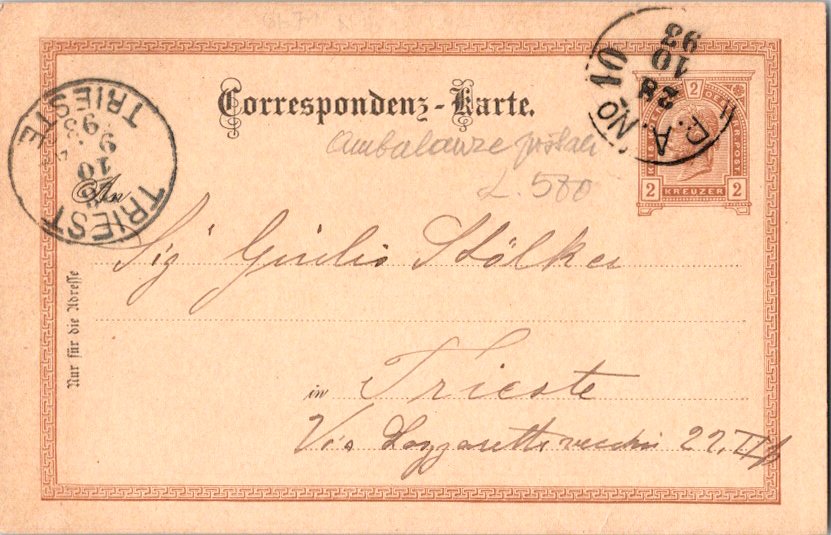 Correspondenz-Karte.
P.A. No 10
28
10
93
2 2
KREUZER
2 2
Ambulanze postali
L. 580
TRIEST
TRIESTE
10
93
An
Sig Giulio Stölker
Nur für die Adresse
in Trieste
Via Lazzaretto vecchio 22, II p